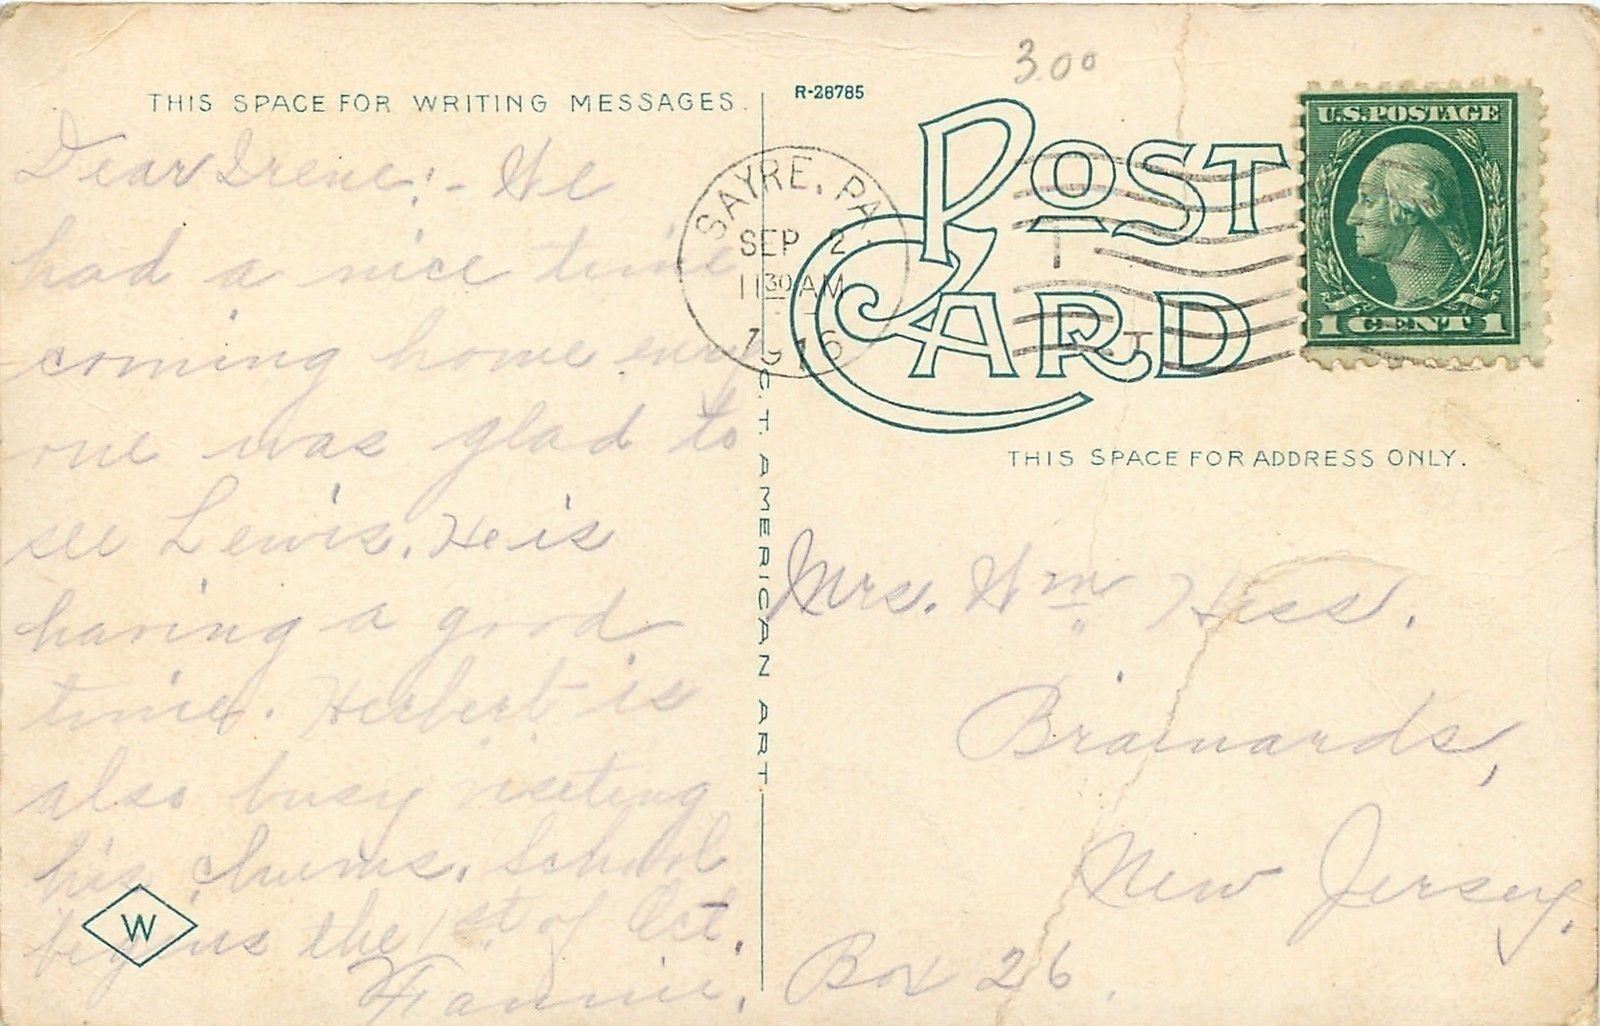 THIS SPACE FOR WRITING MESSAGES.
Dear Irene:- We
had a nice time
coming home every
one was glad to
see Lewis. He is
having a good
time. Herbert is
also busy visiting
his chums. School
begins the 1st of Oct.
Fannie.
W
C.T. AMERICAN ART
R-28785
3.00
POST CARD
SAYRE, PA.
SEP 2
1130 AM
1916
U.S. POSTAGE
1 CENT 1
THIS SPACE FOR ADDRESS ONLY.
Mrs. Wm Hess.
Brainards,
New Jersey.
Box 26.